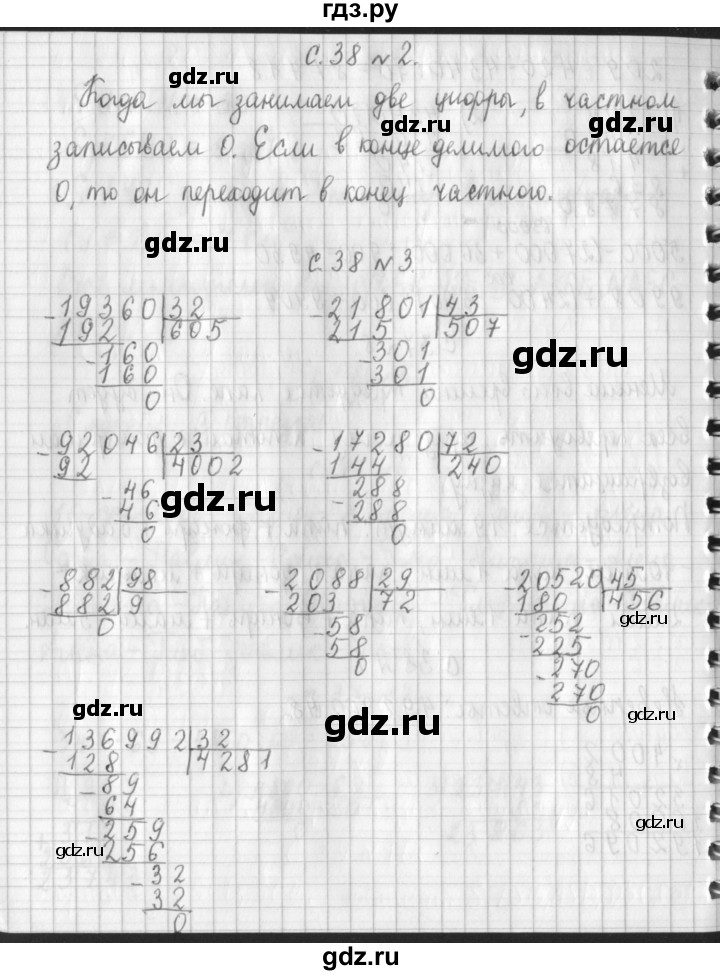 гдз.ру
с. 38 № 2.
Когда мы занимаем две цифры, в частном
gdz.ru gdz.ru
gdz.ru
записываем 0. Если в конце делимого остаётся
0, то он переходит в конец частного.
gdz.ru
с. 38 № 3
-19360|32
192 |605
-160
160
0
-21801|43
215 |507
-301
301
0
gdz.ru
-92046|23
92 |4002
-46
46
0
gdz.ru
-17280|72
144 |240
-288
288
0
-882|98
882|9
0
-2088|29
203 |72
-58
58
0
-20520|45
180 |456
-252
225
-270
270
0
gdz.ru
gdz.ru
gdz.ru
gdz.ru
-136992|32
128 |4281
-89
64
-259
256
-32
32
0
gdz.ru
gdz.ru
gdz.ru